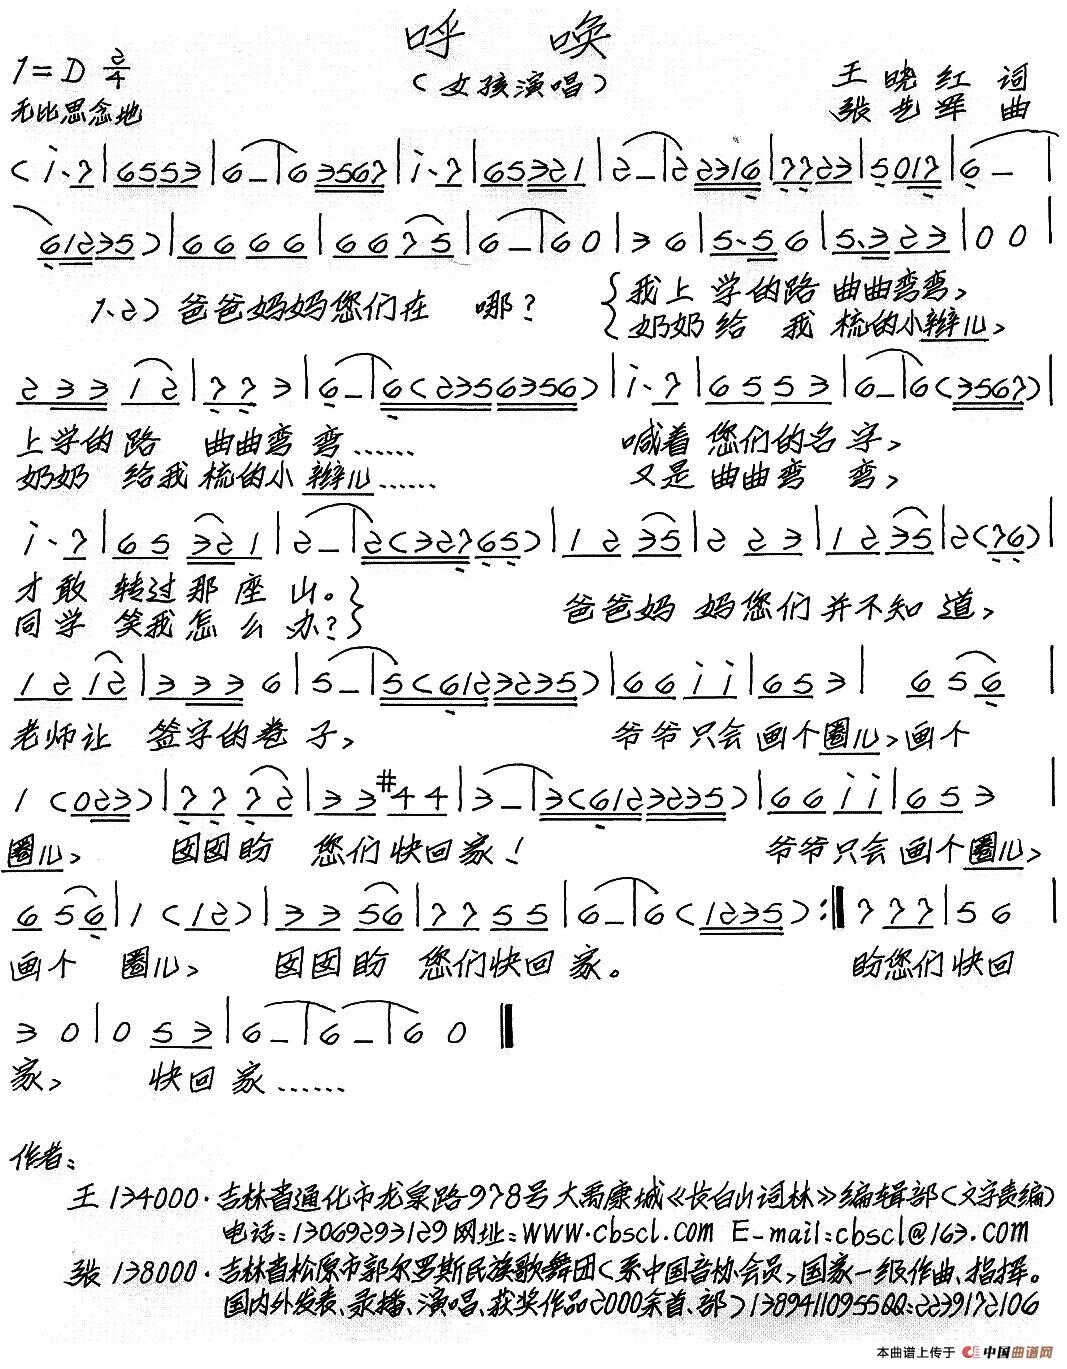 呼 唤
1=D 2/4
(女孩演唱)
王晓红 词
无比思念地
张艺军 曲
(i·7|6553|6—|63567|i·7|65321|2—|22316|7723|5017|6—|
61235)|6666|6675|6—|60|36|5·56|5·323|00|
1.2)爸爸妈妈您们在 哪?
{我上学的路曲曲弯弯,
{奶奶给我梳的小辫儿,
23312|773|6—|6(2356356)|i·7|6553|6—|6(3567)|
上学的路 曲曲弯弯…… 喊着您们的名字,
奶奶给我梳的小辫儿…… 又是曲曲弯弯,
i·7|65321|2—|2(32765)|1235|223|1235|2(76)|
才敢转过那座山。}
同学笑我怎么办?} 爸爸妈妈您们并不知道,
1212|3336|5—|5(6123235)|66ii|653|656|
老师让签字的卷子, 爷爷只会画个圈儿,画个
1(023)|7772|33#44|3—|3(6123235)|66ii|653|
圈儿, 囡囡盼您们快回家! 爷爷只会画个圈儿,
656|1(12)|3356|7755|6—|6(1235):‖777|56|
画个圈儿, 囡囡盼您们快回家。 盼您们快回
30|053|6—|6—|60‖
家, 快回家……
作者:
王 134000·吉林省通化市龙泉路978号大禹康城《长白山词林》编辑部(文字责编)
电话:13069293129网址:www.cbscl.com E-mail:cbscl@163.com
张 138000·吉林省松原市郭尔罗斯民族歌舞团(系中国音协会员,国家一级作曲、指挥。
国内外发表、录播、演唱、获奖作品2000余首、部)13894110955QQ:2239172106
本曲谱上传于 中国曲谱网